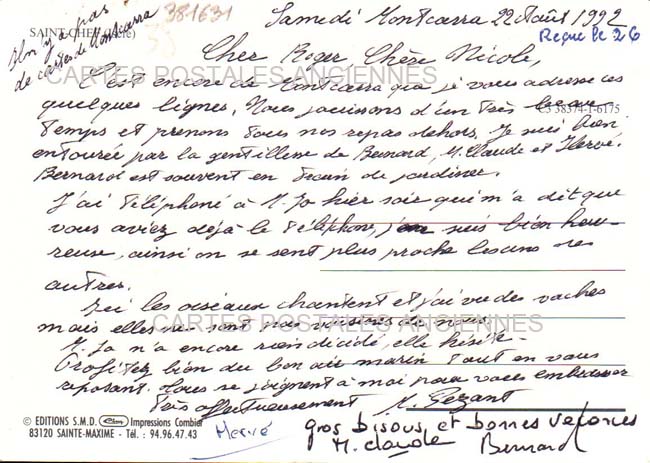 Il n'y a pas
de cartes de Montcarra
SAINT-CHEF (Isère)
381631
38
Samedi Montcarra 22 Août 1992
Reçue le 26
Cher Roger Chère Nicole,
CARTES POSTALES ANCIENNES
C'est encore de Montcarra que je vous adresse ces
quelques lignes. Nous jouissons d'un très beau
C3 38374-1-6175
temps et prenons tous nos repas dehors. Je suis bien
entourée par la gentillesse de Bernard, M. Claude et Hervé.
Bernard est souvent en train de jardiner.
J'ai téléphoné à M. Jo hier soir qui m'a dit que
vous aviez déjà le téléphone, j'en suis bien heu-
reuse, ainsi on se sent plus proche les uns des
autres.
Ici les oiseaux chantent et j'ai vu des vaches
mais elles ne sont pas voisines de nous.
CARTES POSTALES ANCIENNES
M. Jo n'a encore rien décidé, elle hésite.
Profitez bien du bon air marin tout en vous
reposant. Tous se joignent à moi pour vous embrasser
très affectueusement M. Pezant
© EDITIONS S.M.D. Impressions Combier
83120 SAINTE-MAXIME - Tél. : 94.96.47.43
Hervé
gros bisous et bonnes vacances
M. Claude Bernard